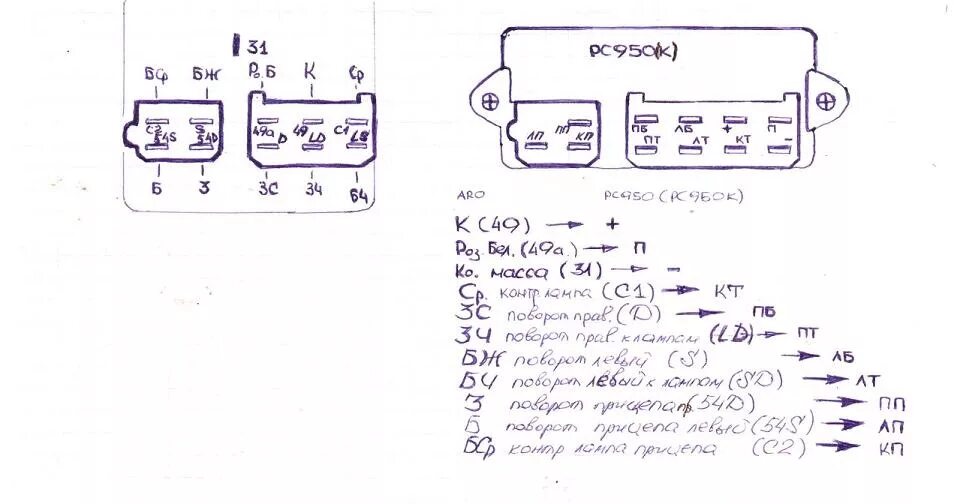 31
БЖ
Роз.Б
К
Ср
БСр
С2
S
54S
54D
49а
D
49
LD
С1
LS
Б
З
ЗС
ЗЧ
БЧ
РС950(К)
ЛП
ПП
КП
ПБ
ЛБ
+
П
ПТ
ЛТ
КТ
-
ARO РС950 (РС950К)
К (49) → +
Роз.Бел.(49а.) → П
Ко. масса (31) → -
Ср. контр лампа (С1) → КТ
ЗС поворот прав.(D) → ПБ
ЗЧ поворот прав. к лампам (LD) → ПТ
БЖ поворот левый (S) → ЛБ
БЧ поворот левый к лампам (SD) → ЛТ
З поворот прицепа пр.(54D) → ПП
Б поворот прицепа левый (54S) → ЛП
БСр контр лампа прицепа (С2) → КП